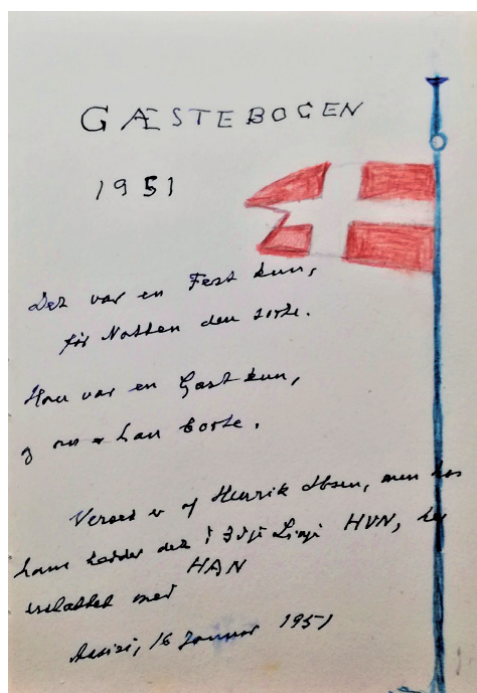 GÆSTEBOGEN
1951
Det var en Fest kun,
før Natten den sorte.
Han var en Gæst kun,
og nu er han borte.
Verset er af Henrik Ibsen, men hos
ham hedder det i 3dje Linje HUN, her
erstattet med HAN
Assisi, 16 Januar 1951